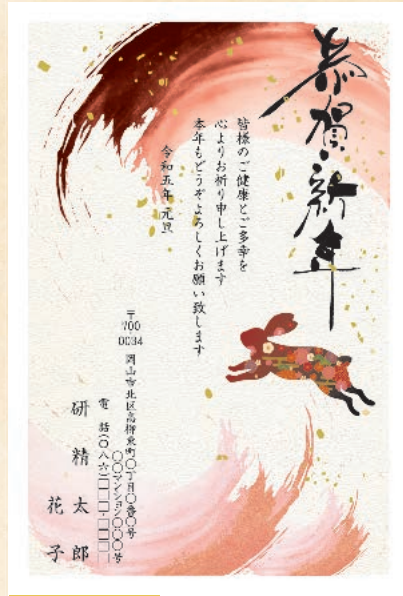 恭賀新年
皆様のご健康とご多幸を
心よりお祈り申し上げます
本年もどうぞよろしくお願い致します
令和五年元旦
〒700-0034 岡山市北区高柳東町〇丁目〇番〇号
〇〇マンション〇〇〇号
電話(〇八六)□□□-□□□□
研精太郎
花子